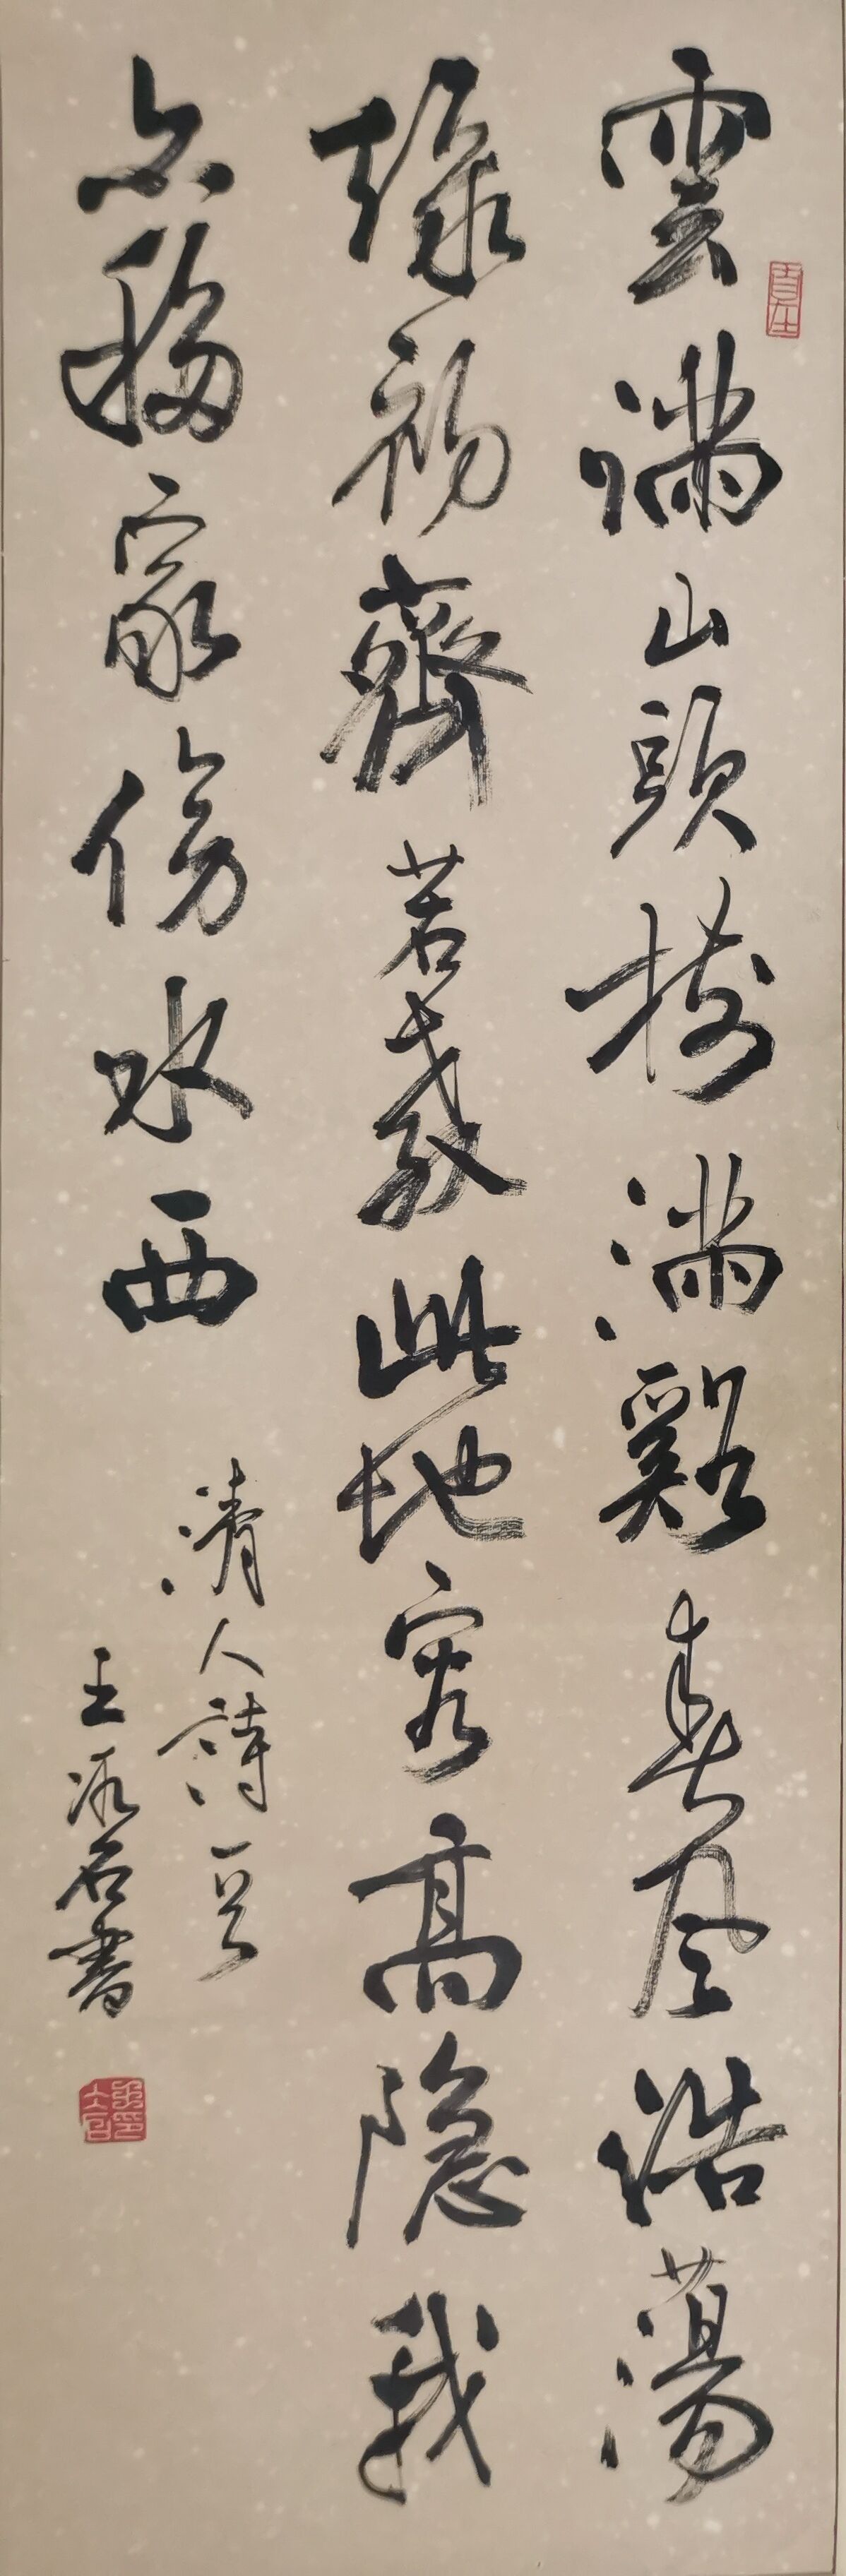 雲滿山頭樹滿谿春風浩蕩
綠初齊若教此地容高隱我
亦移家傍水西
清人詩一首
王
石書